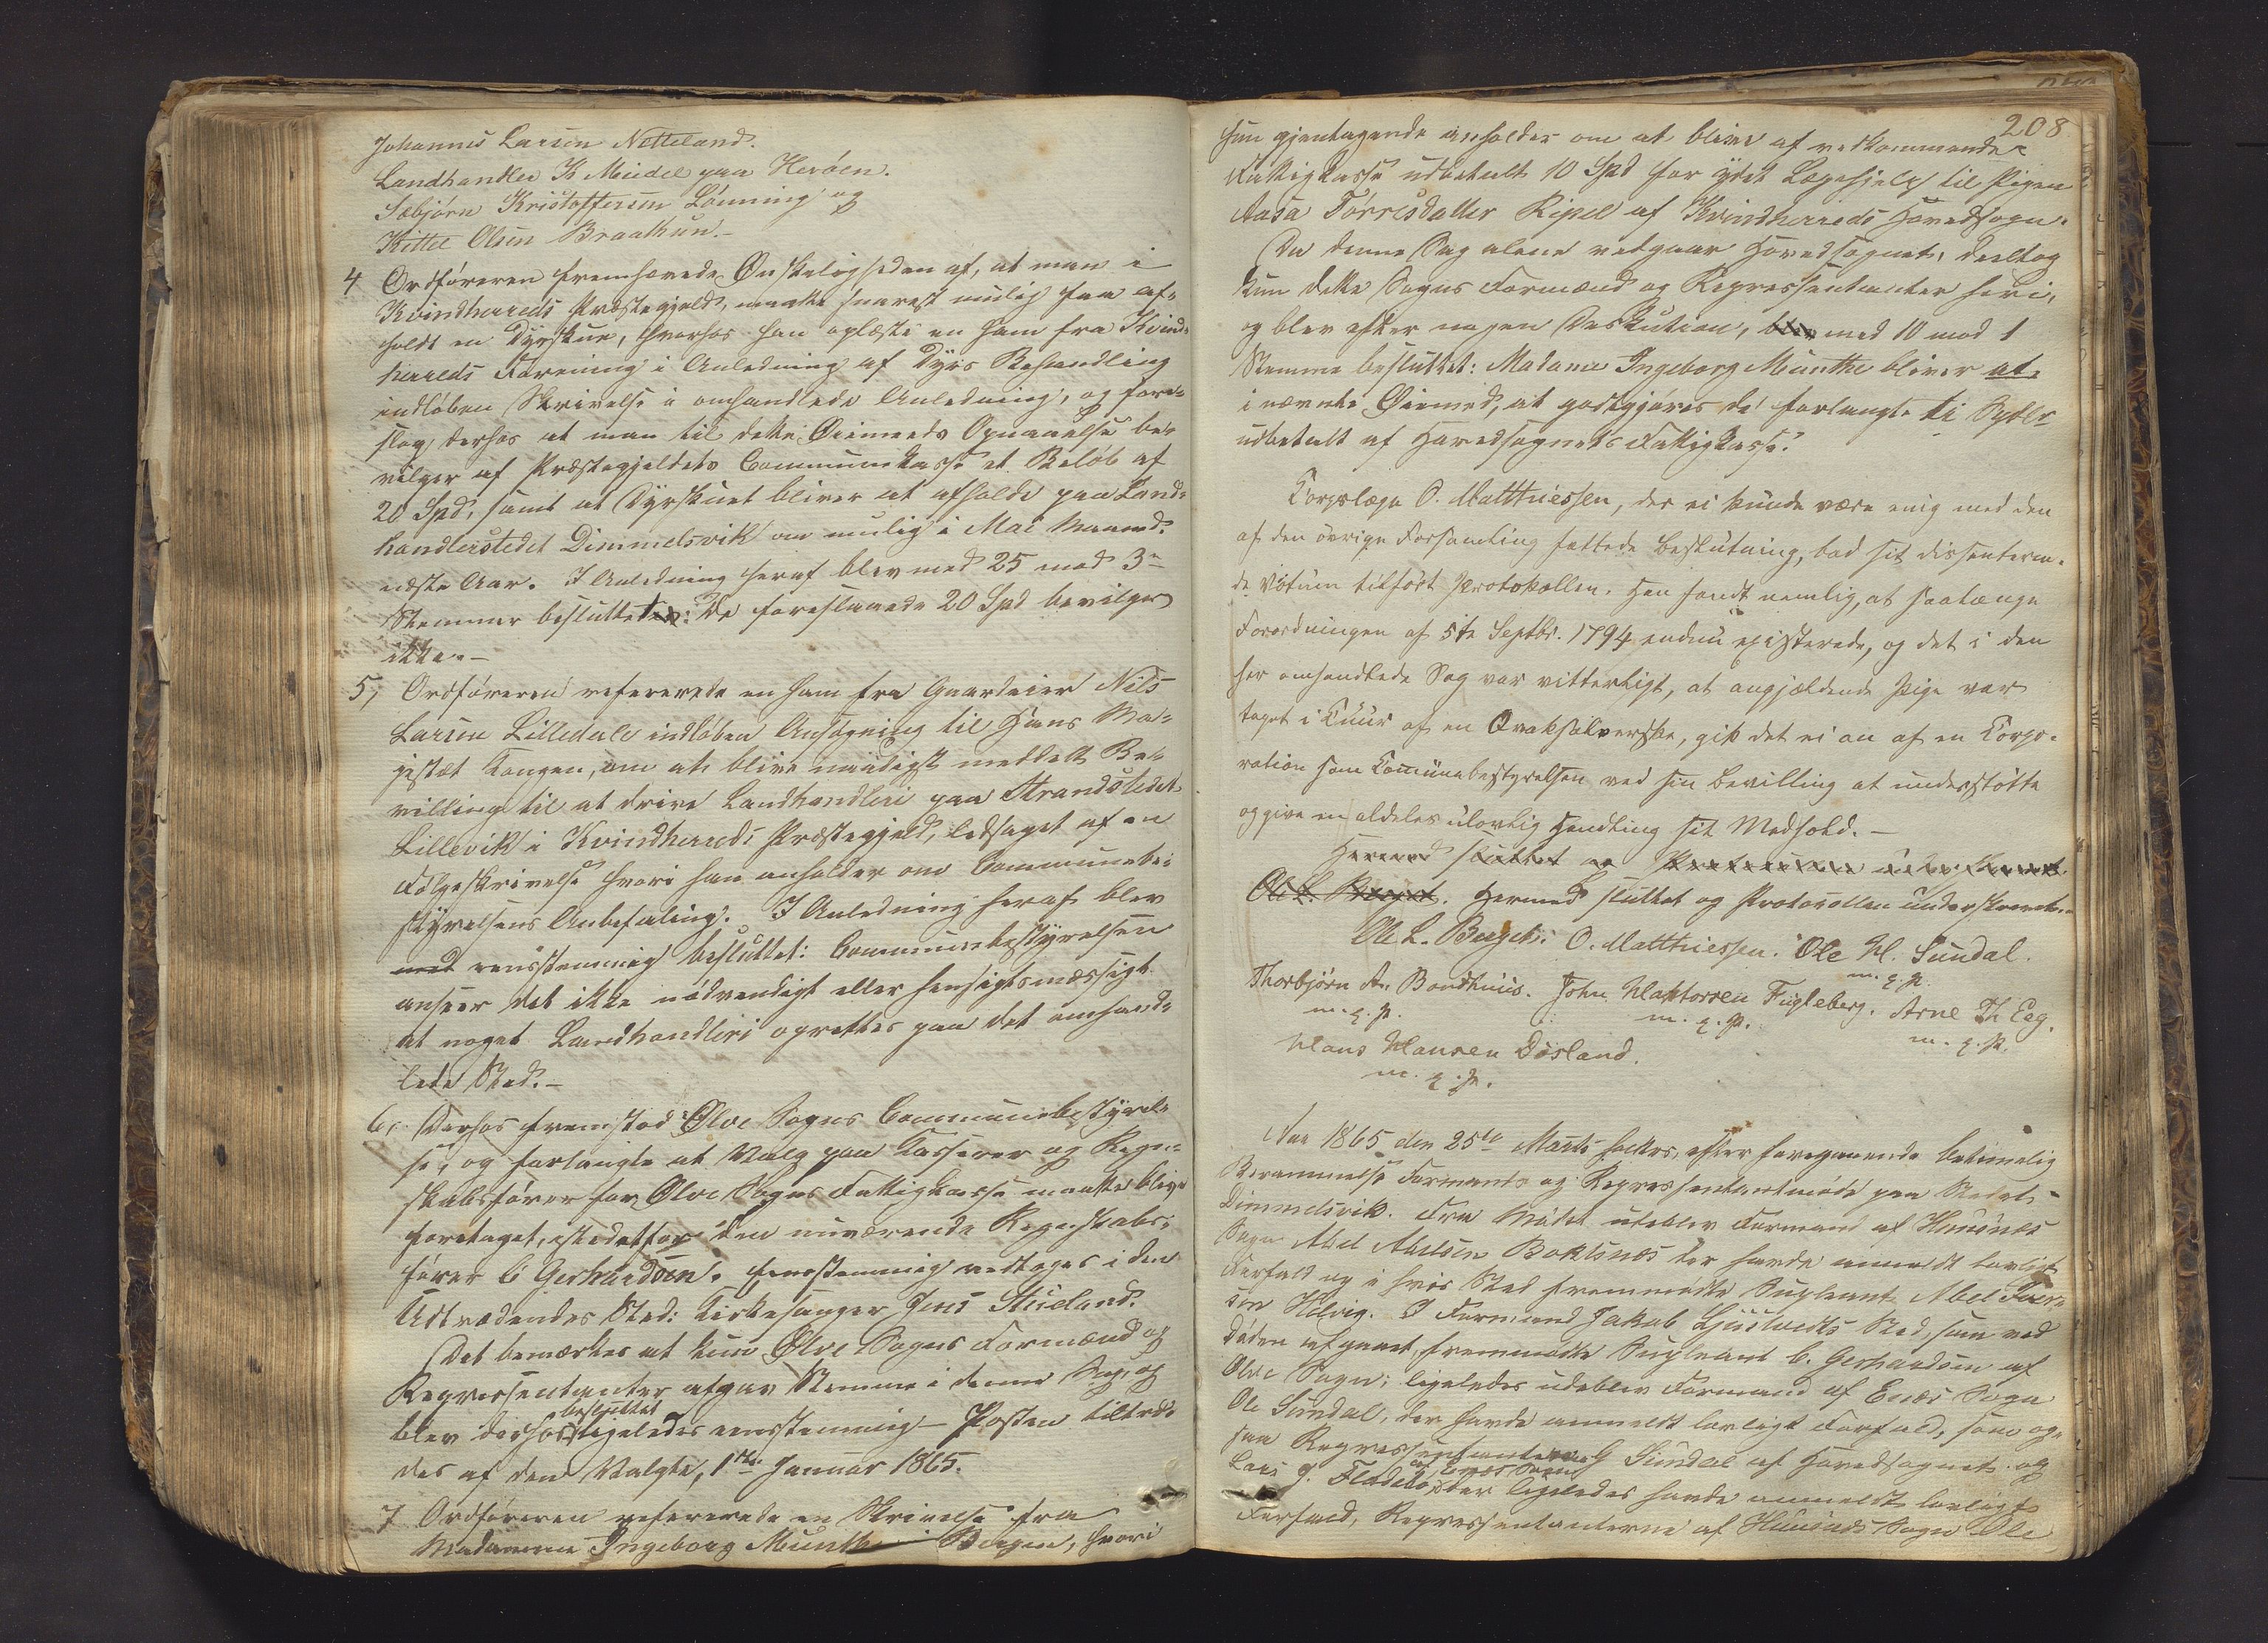 Johannes Larsen Netteland.
Landhandler K Meidel paa Herøen.
Sæbjørn Kristoffersen Lønning og
Kittel Olsen Braathun.-
4 Ordføreren fremhævede Ønskeligheden af, at man i
Kvindherreds Præstegjeld, maatte snarest mulig faa af-
holdt en Dyrskue, hvorhos han oplæste en ham fra Kvind-
herreds Forening i Anledning af Dyrs Behandling
indløben Skrivelse i omhandlede Anledning, og fore-
slog derhos at man til dette Øiemeds Opnaaelse be-
vilger af Præstegjeldets Communekasse et Beløb af
20 Spd, samt at Dyrskuet bliver at afholde paa Land-
handlerstedet Dimmelsvik om mulig i Mai Maaned
næste Aar. I Anledning heraf blev med 25 mod 3
Stemmer besluttet: De foreslaaede 20 Spd bevilges
ikke.-
5, Ordføreren refererede en ham fra Gaardeier Nils
Larsen Lilledale indløben Ansøgning til Hans Ma-
jestæt Kongen, om at blive naadigst meddelt Be-
villing til at drive Landhandleri paa Strandstedet
Lillevik i Kvindherreds Præstegjeld, ledsaget af en
Følgeskrivelse hvori han anholder om Communebe-
styrelsens Anbefaling. I Anledning heraf blev
med eensstemmig besluttet: Communebestyrelsen
anseer det ikke nødvendigt eller hensigtsmæssigt
at noget Landhandleri oprettes paa det omhand-
lede Sted.-
6, Derhos fremstod Ølve Sogns Communebestyrel-
se, og forlangte at Valg paa Kasserer og Regn-
skabsfører for Ølve Sogns Fattigkasse maatte blive
foretaget, istedetfor den nuværende Regnskabs-
fører C Gerhardsen. Eensstemmig vedtoges i den
Udtrædendes Sted: Kirkesanger Jens Stueland.
Det bemærkes at kun Ølve Sogns Formænd og
Repressentanter afgav Stemme i denne Sag, og
blev derhos besluttet ligeledes eensstemmig - Posten tiltræ-
des af den Valgte, 1ste Januar 1865.
7 Ordføreren refererede en Skrivelse fra
Madamme Ingeborg Munthe i Bergen, hvori
208
hun gjentagende anholder om at blive af vedkommende
Fattigkasse udbetalt 10 Spd for ydet Lægehjelp til Pigen
Aasa Tørresdatter Ripel af Kvindherreds Hovedsogn.
Da denne Sag alene vedgaar Hovedsognet, deeltog
kun dette Sogns Formænd og Repressentanter heri,
og blev efter nogen Deskution, blev med 10 mod 1
Stemme besluttet: Madame Ingeborg Munthe bliver at
i nævnte Øiemed, at godtgjøres de forlangte ti Spdlr
udbetalt af Hovedsognets Fattigkasse.
Korpslæge O. Matthiessen, der ei kunde være enig med den
af den øvrige Forsamling fattede Beslutning, bad sit dissenteren-
de Votum tilført Protokollen. Han fandt nemlig, at saalænge
Forordningen af 5te Septbr. 1794 endnu existerede, og det i den
her omhandlede Sag var vitterligt, at angjældende Pige var
taget i Kuur af en Qvaksalverske, gik det ei an af en Korpo-
ration som Komünebestyrelsen ved sin Bevilling at understøtte
og give en aldeles ulovlig Handling sit Medhold.-
Hermed sluttet og Protocollen underskrevet.
Ole L. Berget. Hermed sluttet og Protocollen underskrevet.
Ole L. Berget. O. Matthiessen. Ole H. Sundal.
m. q. p.
Thorbjørn A. Bondhuus. John Haktorsen Fugleberg. Arne Th Eeg.
m. q. p. m. q. p. m. q. p.
Hans Hansen Døsland.
m. q. p.
Aar 1865 den 25de Marts holdtes, efter foregaaende betimelig
Berammelse Formands og Repressentantmøde paa Stedet
Dimmelsvik. Fra Mødet udeblev Formand af Huusnes
Sogn Abel Abelsen Boktsnes der havde anmeldt lovligt
Forfald og i hvis Sted fremmødte Supleant Abel Iver-
sen Helvig. I Formand Jakob Ljustvedts Sted, som ved
Døden afgaaet, fremmødte Supleant C. Gerhardsen af
Ølve Sogn; ligeledes udeblev Formand af Enæs Sogn
Ole Sundal, der havde anmeldt lovligt Forfald, som og-
saa Repressentanterne G Sundal af Hovedsognet og
Lars J. Fladebø af Enæs Sogn der ligeledes havde anmeldt lovligt
Forfald, Repressentanterne af Huusnes Sogn Ole